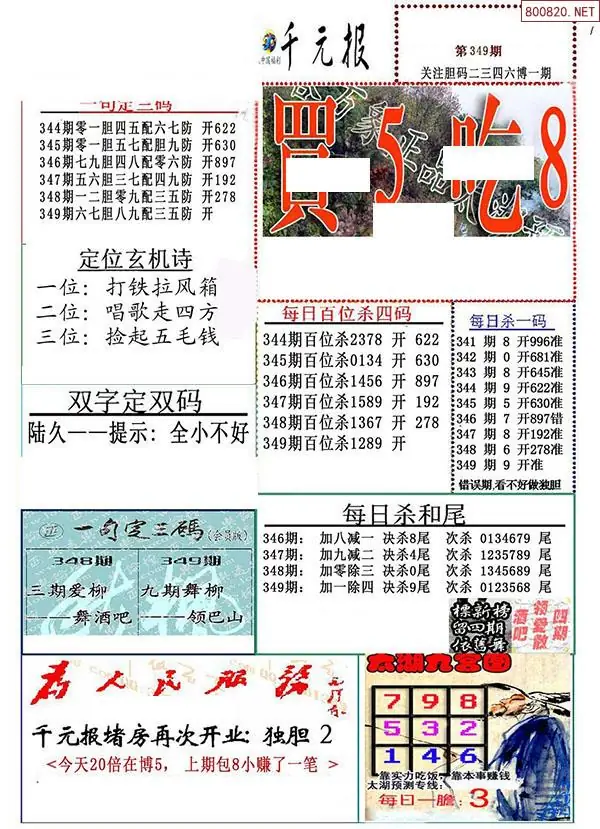 800820.NET
千元报
中国福利
第349期
关注胆码二三四六博一期
買5吃8
一句定三码
344期零一胆四五配六七防 开622
345期零一五七配胆九防 开630
346期七九胆四八配零六防 开897
347期五六胆三七配四九防 开192
348期一二胆零九配三五防 开278
349期六七胆八九配三五防 开
定位玄机诗
一位：打铁拉风箱
二位：唱歌走四方
三位：捡起五毛钱
每日百位杀四码
344期百位杀2378 开 622
345期百位杀0134 开 630
346期百位杀1456 开 897
347期百位杀1589 开 192
348期百位杀1367 开 278
349期百位杀1289 开
每日杀一码
341 期 8 开996准
342 期 0 开681准
343 期 8 开645准
344 期 9 开622准
345 期 5 开630准
346 期 7 开897错
347 期 8 开192准
348 期 6 开278准
349 期 9 开准
错误期,看不好做独胆
双字定双码
陆久——提示：全小不好
一句定三碼(会员版)
348期 349期
三期爱柳 九期舞柳
——舞酒吧 ——领巴山
每日杀和尾
346期： 加八减一 决杀8尾 次杀 0134679 尾
347期： 加九减二 决杀4尾 次杀 1235789 尾
348期： 加零除三 决杀0尾 次杀 1345689 尾
349期： 加一除四 决杀9尾 次杀 0123568 尾
標新榜
留四期
依舊舞
四期
领爱散
酒吧
为人民服务
千元报堵房再次开业: 独胆 2
<今天20倍在博5， 上期包8小赚了一笔 >
太湖九宫图
7 9 8
5 3 2
1 4 6
靠实力吃饭，靠本事赚钱
太湖预测专线:
每日一胆: 3